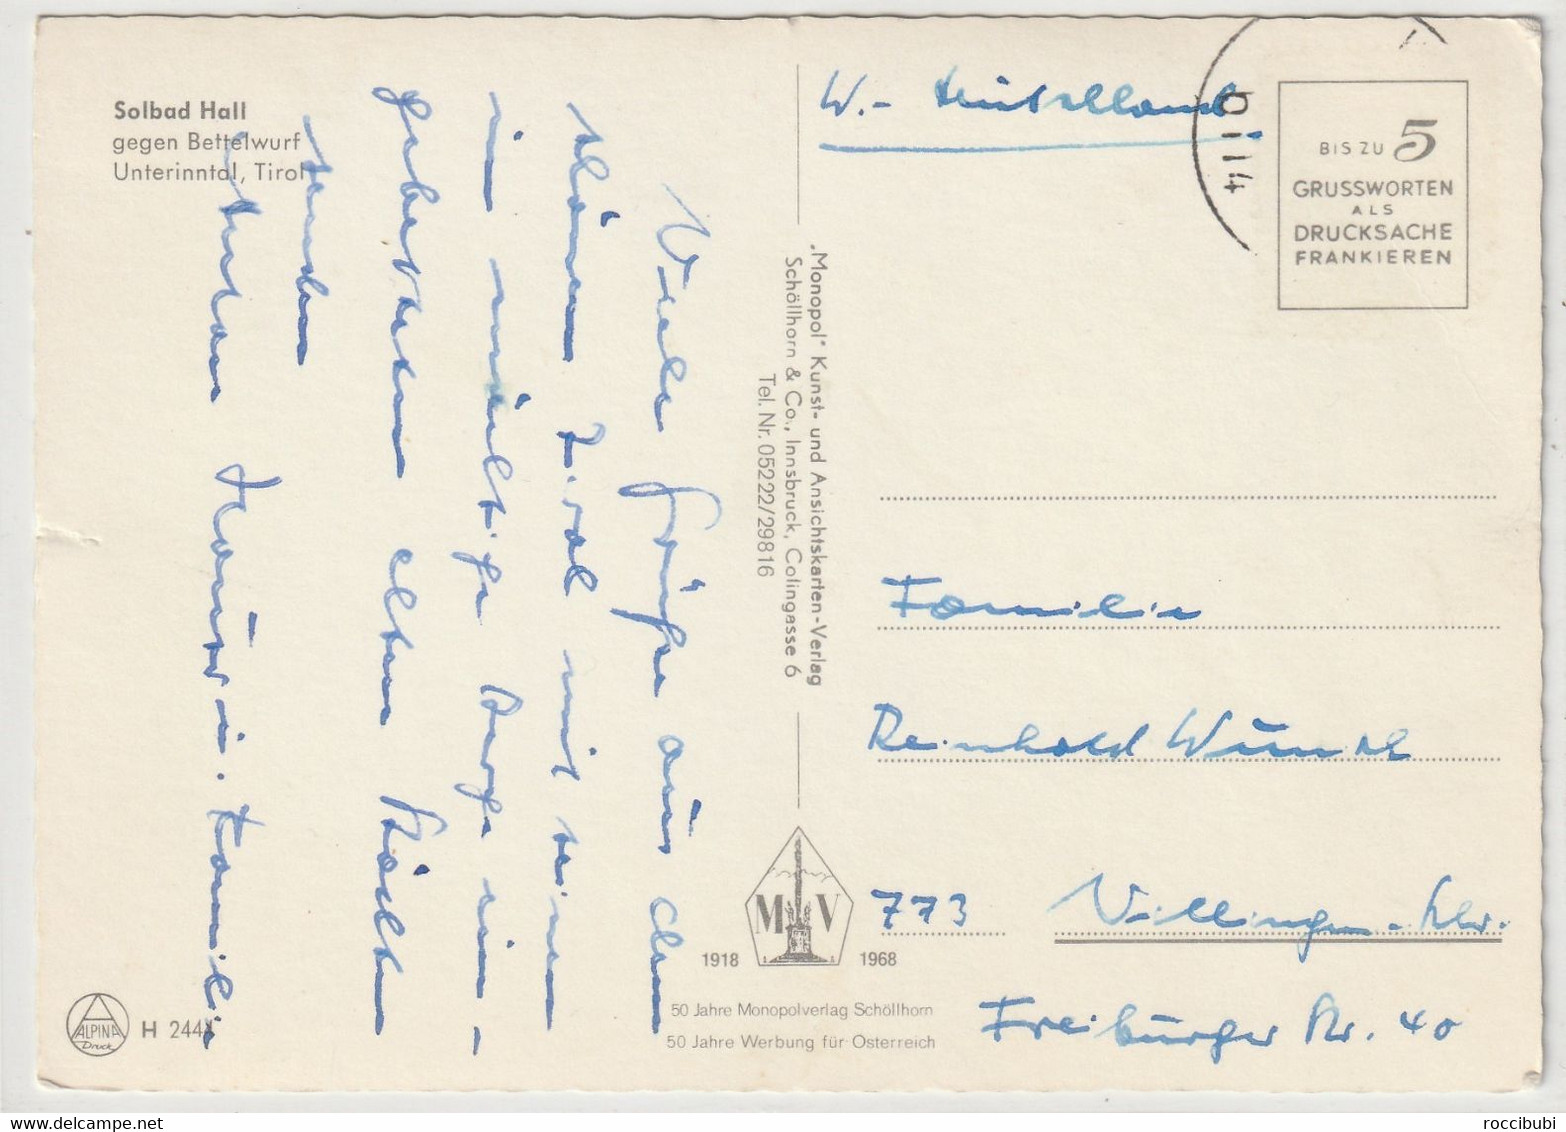 Solbad Hall
gegen Bettelwurf
Unterinntal, Tirol
Viele Grüße aus dem
schönen Tirol mit seinen
mächtige Berge
alten
senden
Familie
"Monopol" Kunst- und Ansichtskarten-Verlag
Schöllhorn & Co., Innsbruck, Colingasse 6
Tel. Nr. 05222/29816
M V
1918 1968
50 Jahre Monopolverlag Schöllhorn
50 Jahre Werbung für Österreich
ALPINA
Druck
H 244
W.- Deutschland
BIS ZU 5
GRUSSWORTEN
ALS
DRUCKSACHE
FRANKIEREN
Familie
Reinhold Wünsch
773 Villingen-Schw.
Freiburger Str. 40
roccibubi